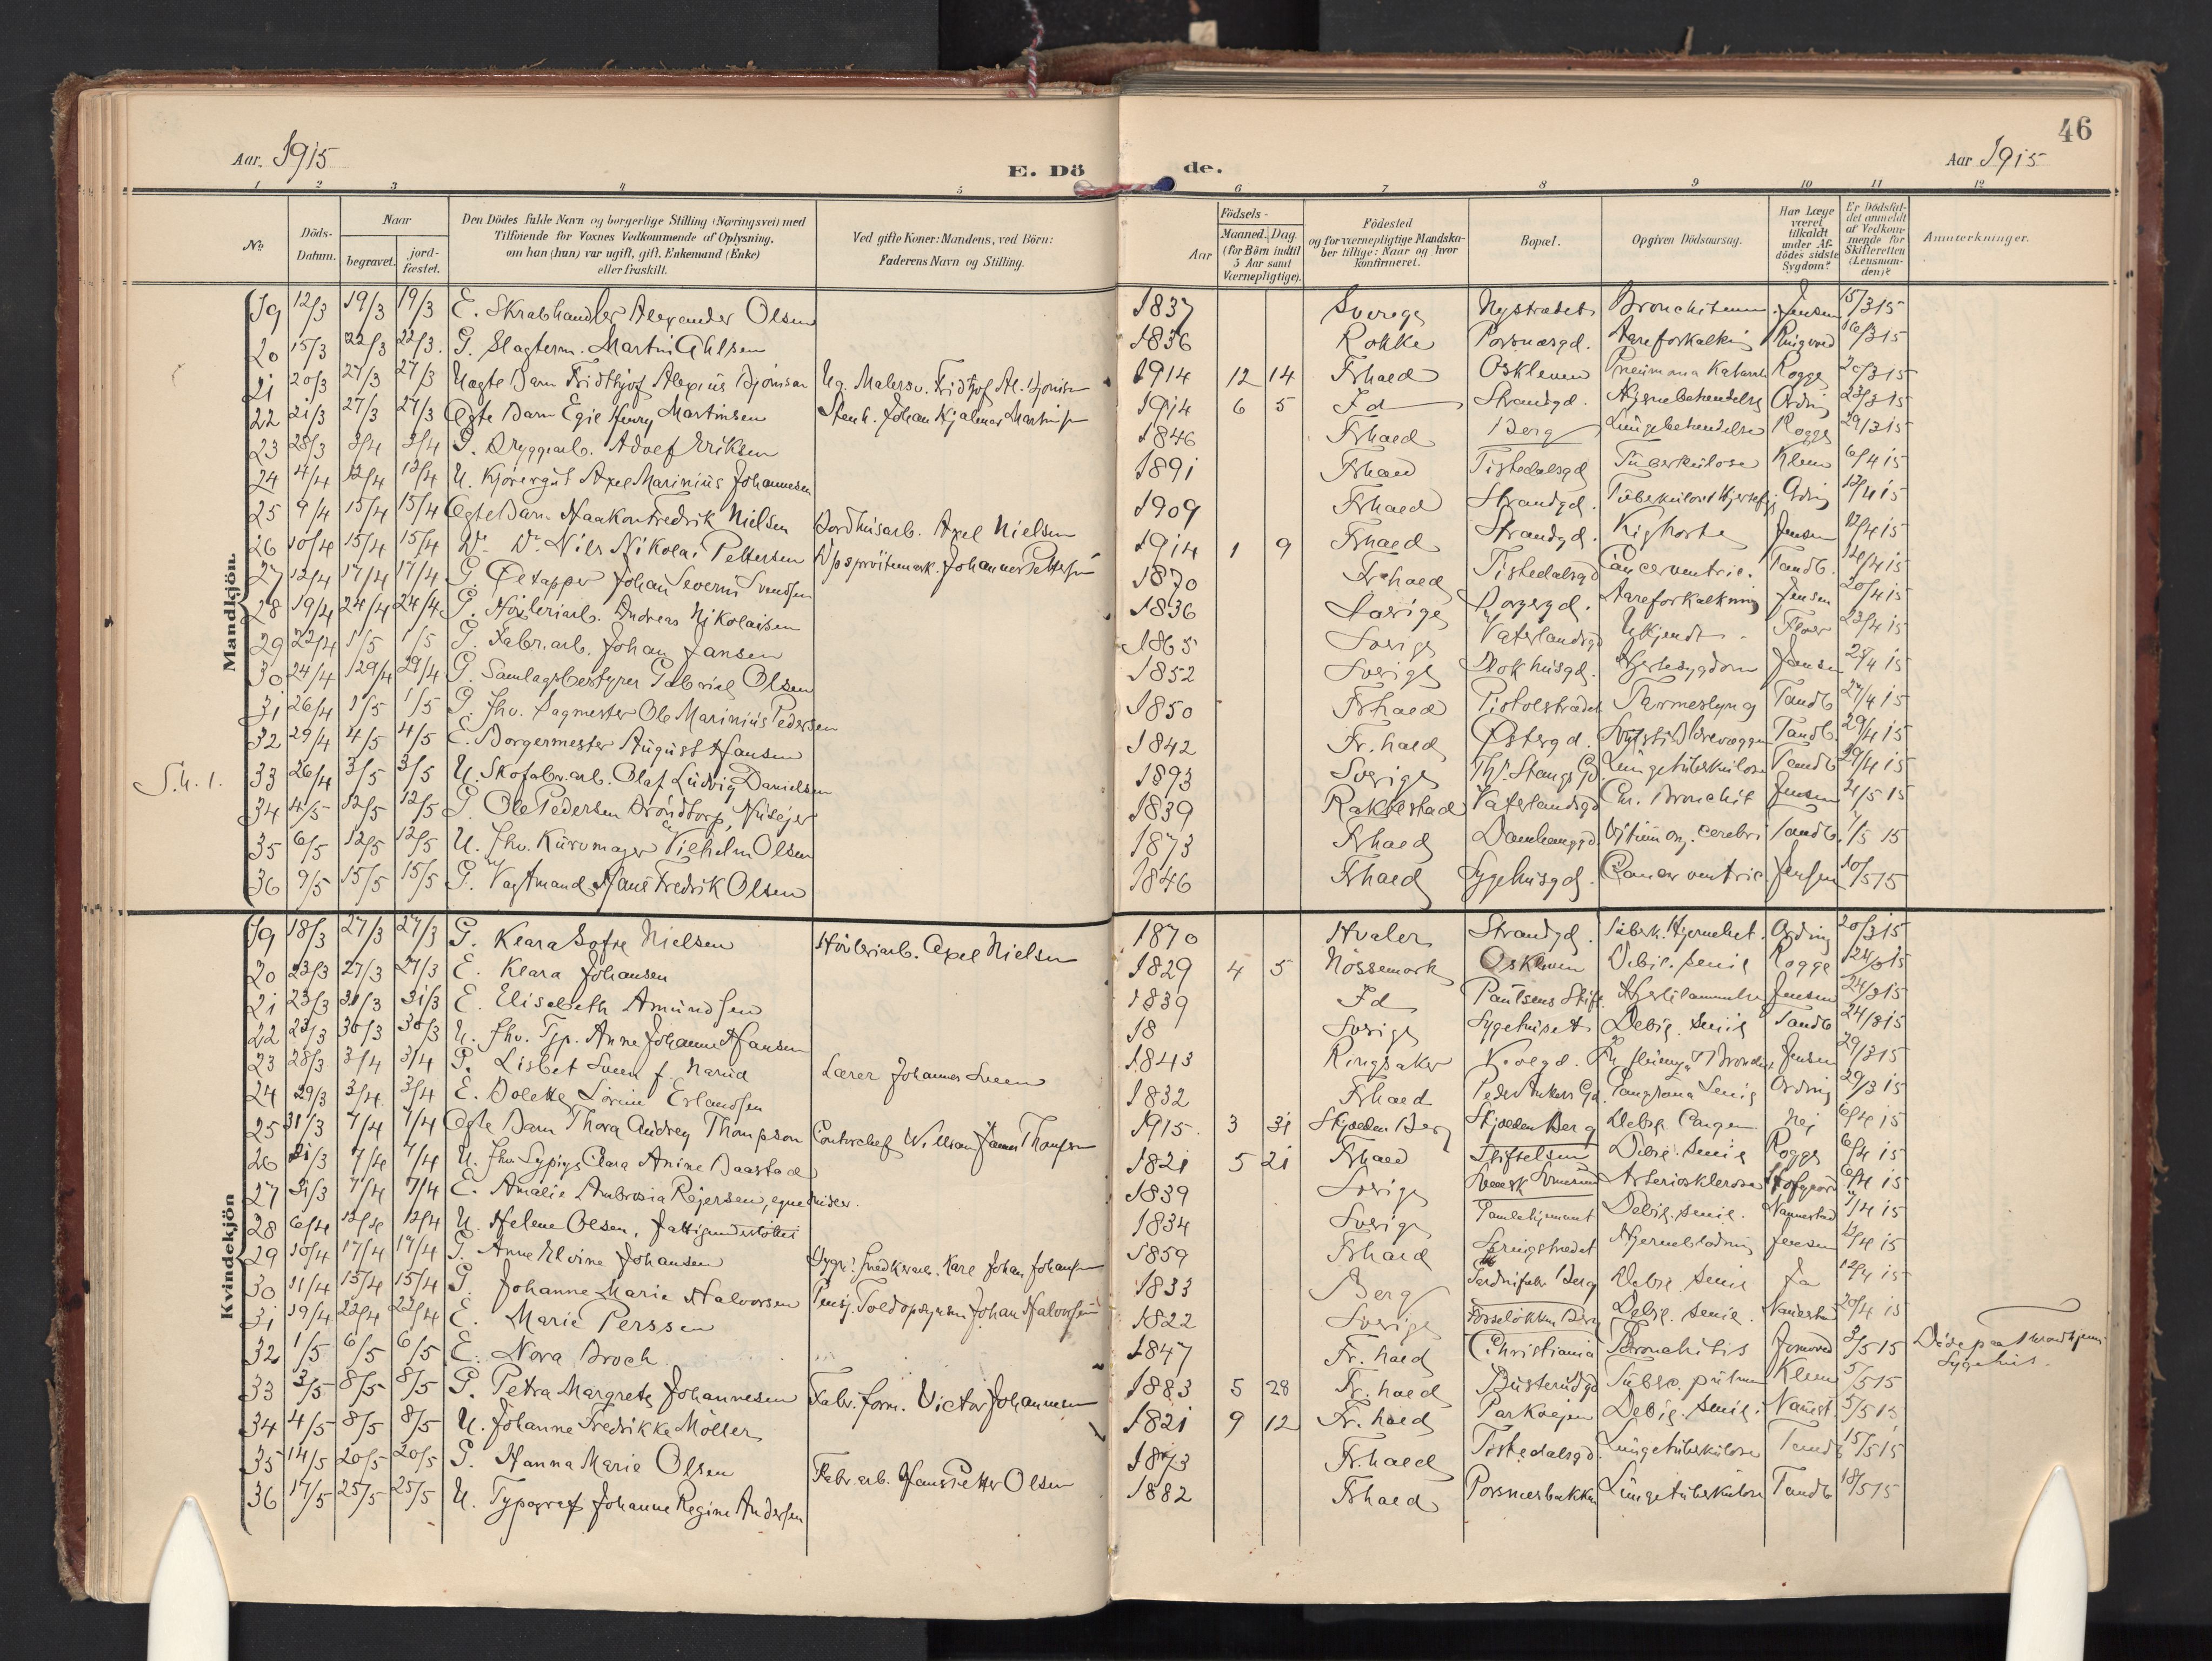 46
Aar. 1915
E. Dö de.
Aar 1915
1 2 3 4 5 6 7 8 9 10 11 12
No.
Döds-Datum.
Naar
begravet.
jord-fæstet.
Den Dödes fulde Navn og borgerlige Stilling (Næringsvei) med
Tilföiende for Voxnes Vedkommende af Oplysning,
om han (hun) var ugift, gift, Enkemand (Enke)
eller fraskilt.
Ved gifte Koner: Mandens, ved Börn:
Faderens Navn og Stilling.
Födsels-
Aar
Maaned. Dag.
(for Börn indtil
5 Aar samt
Værnepligtige).
Födested
og for værnepligtige Mandska-
ber tillige: Naar og hvor
konfirmeret.
Bopæl.
Opgiven Dödsaarsag.
Har Læge
været
tilkaldt
under Af-
dödes sidste
Sygdom?
Er Dödsfal-
det anmeldt
af Vedkom-
mende for
Skifteretten
(Lensman-
den)?
Anmærkninger.
Mandkjön.
19 12/3 19/3 19/3 E. Skrabhandler Alexander Olsen 1837 Sverige Nystrædet Jensen 15/3 15
20 15/3 22/3 22/3. G. Slagterm. Martin Ahlsen 1836 Rokke Porsnæsgd. Aareforkalkning Ringvold 16/3 15
21 20/3 27/3 27/3 Uægte Barn Fridthjof Alexius Ug. Malersv. Fridthjof Al. 1914 12 14 Frhald Oskleven Pneumonia Katarrh Rogge 20/3 15
22 21/3 27/3 27/3 Ægte Barn Egil Henry Martinsen Stenh. Johan Hjalmar Martinsen 1914 6 5 Id Strandgd. Hjernebetændelse Ording 23/3 15
23 28/3 3/4 3/4 G. Bryggearb. Adolf Eriksen 1846 Frhald Berg Lungebetændelse Rogge 29/3 15
24 4/4 12/4 12/4 U. Kjöregut Axel Marinius Johannesen 1891 Frhald Tistedalsgd Tuberkulose Klem 6/4 15
25 9/4 15/4 15/4 Ægte Barn Haakon Fredrik Nielsen Bordhusarb. Axel Nielsen 1909 Frhald Strandgd. Ording 12/4 15
26 10/4 15/4 15/4 Do. Do. Nils Nikolai Pettersen Johannes Pettersen 1914 1 9 Frhald Strandgd. Kighoste Jensen 12/4 15
27 12/4 17/4 17/4 G. Öltapper Johan Severin Svendsen 1870 Frhald Tistedalsgd Cancer ventric. Tandb. 14/4 15
28 19/4 24/4 24/4 G. Hövleriarb. Andreas Nikolaisen 1836 Sverige Borgergd. Aareforkalkning Jensen 20/4 15
29 22/4 1/5 1/5 G. Fabr.arb. Johan Jansen 1865 Sverige Vaterlandsgd Ukjendt Floer 22/4 15
30 24/4 29/4 29/4 G. Samlagsbestyrer Gabriel Olsen 1852 Sverige Blokhusgd. Hjertesygdom Jensen 28/4 15
31 26/4 1/5 1/5 G. fhv. Sagmester Ole Marinius Pedersen 1850 Frhald Pistolstrædet Tarmeslyng Tandb 27/4 15
32 29/4 4/5 4/5 E. Borgermester August Hansen 1842 Fr.hald Østergd. Tandb. 29/4 15
S.u. 1. 33 26/4 3/5 3/5 U. Skofabr.arb. Olaf Ludvig Danielsen 1893 Sverige Ths. Stangs Gd. Lungetuberkulose Tandb 29/4 15
34 4/5 12/5 12/5 G. Ole Pedersen Bröndtorp, Huseier 1839 Rakkestad Vaterlandsgd Chr. Bronchit Jensen 4/5 15
35 6/5 12/5 12/5 U. fhv. Kurvmager Vilhelm Olsen 1873 Frhald Damhauggd. Vitium org. cerebri Tandb. 7/5 15
36 9/5 15/5 15/5 G. Vagtmand Hans Fredrik Olsen 1846 Frhald Sygehusgd. Cancer ventric. Jensen 10/5 15
Kvindekjön
19 18/3 27/3 27/3 G. Klara Sofie Nielsen Hövleriarb. Axel Nielsen 1870 Hvaler Strandgd. Tuberk. Hjernebet. Ording 20/3 15
20 23/3 27/3 27/3 E. Klara Johansen 1829 4 5 Nössemark Oskleven Debil. senil Rogge 24/3 15
21 23/3 31/3 31/3 E. Elisabeth Amundsen 1839 Id Paulsens Stift. Hjertelammelse Jensen 24/3 15
22 23/3 30/3 30/3 U. fhv. Tjp. Anne Johanne Hansen 18 Sverige Sygehuset Debil. senil Tandb 24/3 15
23 28/3 3/4 3/4 G. Lisbet Sveen f. Narud Lærer Johannes Sveen 1843 Ringsaker Jensen 29/3 15
24 29/3 3/4 3/4 E. Dolette Lovine Erlandsen 1832 Frhald Peder Ankers Gd. Gangræna Senil Ording 29/3 15
25 31/3 7/4 7/4 Ægte Barn Thora Audrey Thompson Contorchef William James Thompson 1915 3 31 Skjolden Berg Skjolden Berg Debil. Congen. Nej 6/4 15
26 31/3 7/4 7/4 U. fhv. Sypige Clara Anine Baastad 1821 5 21 Frhald Stiftelsen Debil. senil Rogge 6/4 15
27 31/3 7/4 7/4 E. Amalie Ambrosia Rejersen, egne midler. 1839 Sverige Arteriosklerose 6/4 15
28 6/4 12/4 12/4 U. Helene Olsen, fattigunderstöttet 1834 Sverige Gamlehjemmet Debil. senil. Nannestad 7/4 15
29 10/4 17/4 17/4 G. Anne Elvine Johansen Karl Johan Johansen 1859 Frhald Hjerneblödning Jensen 12/4 15
30 11/4 15/4 15/4 G. Johanne Marie Halvorsen Pensj. Toldopsynsm. Johan Halvorsen 1833 Berg Debil senil Ja 12/4 15
31 19/4 22/4 22/4 E. Marie Perssen 1822 Sverige Fosselökken Berg Debil. senil. 20/4 15
32 1/5 6/5 6/5 E. Nora Broch 1847 Fr.hald Christiania Bronchitis 3/5 15 Döde paa
Sygehus.
33 3/5 8/5 8/5 G. Petra Margrete Johannesen Fabr.form. Victor Johannesen 1883 5 28 Fr.hald Busterudgd Tuberc. pulm Klem 5/5 15
34 4/5 8/5 8/5 U. Johanne Fredrikke Möller 1821 9 12 Fr.hald Parkvejen Debil. senil. Nannest 5/5 15
35 14/5 20/5 20/5 G. Hanna Marie Olsen Fabr.arb. Hans Petter Olsen 1873 Frhald Tistedalsgd. Lungetuberkulose Tandb 15/5 15
36 17/5 25/5 25/5 U. Typograf Johanne Regine Andersen 1882 Frhald Porsnæsbakken Lungetuberkulose Tandb 18/5 15